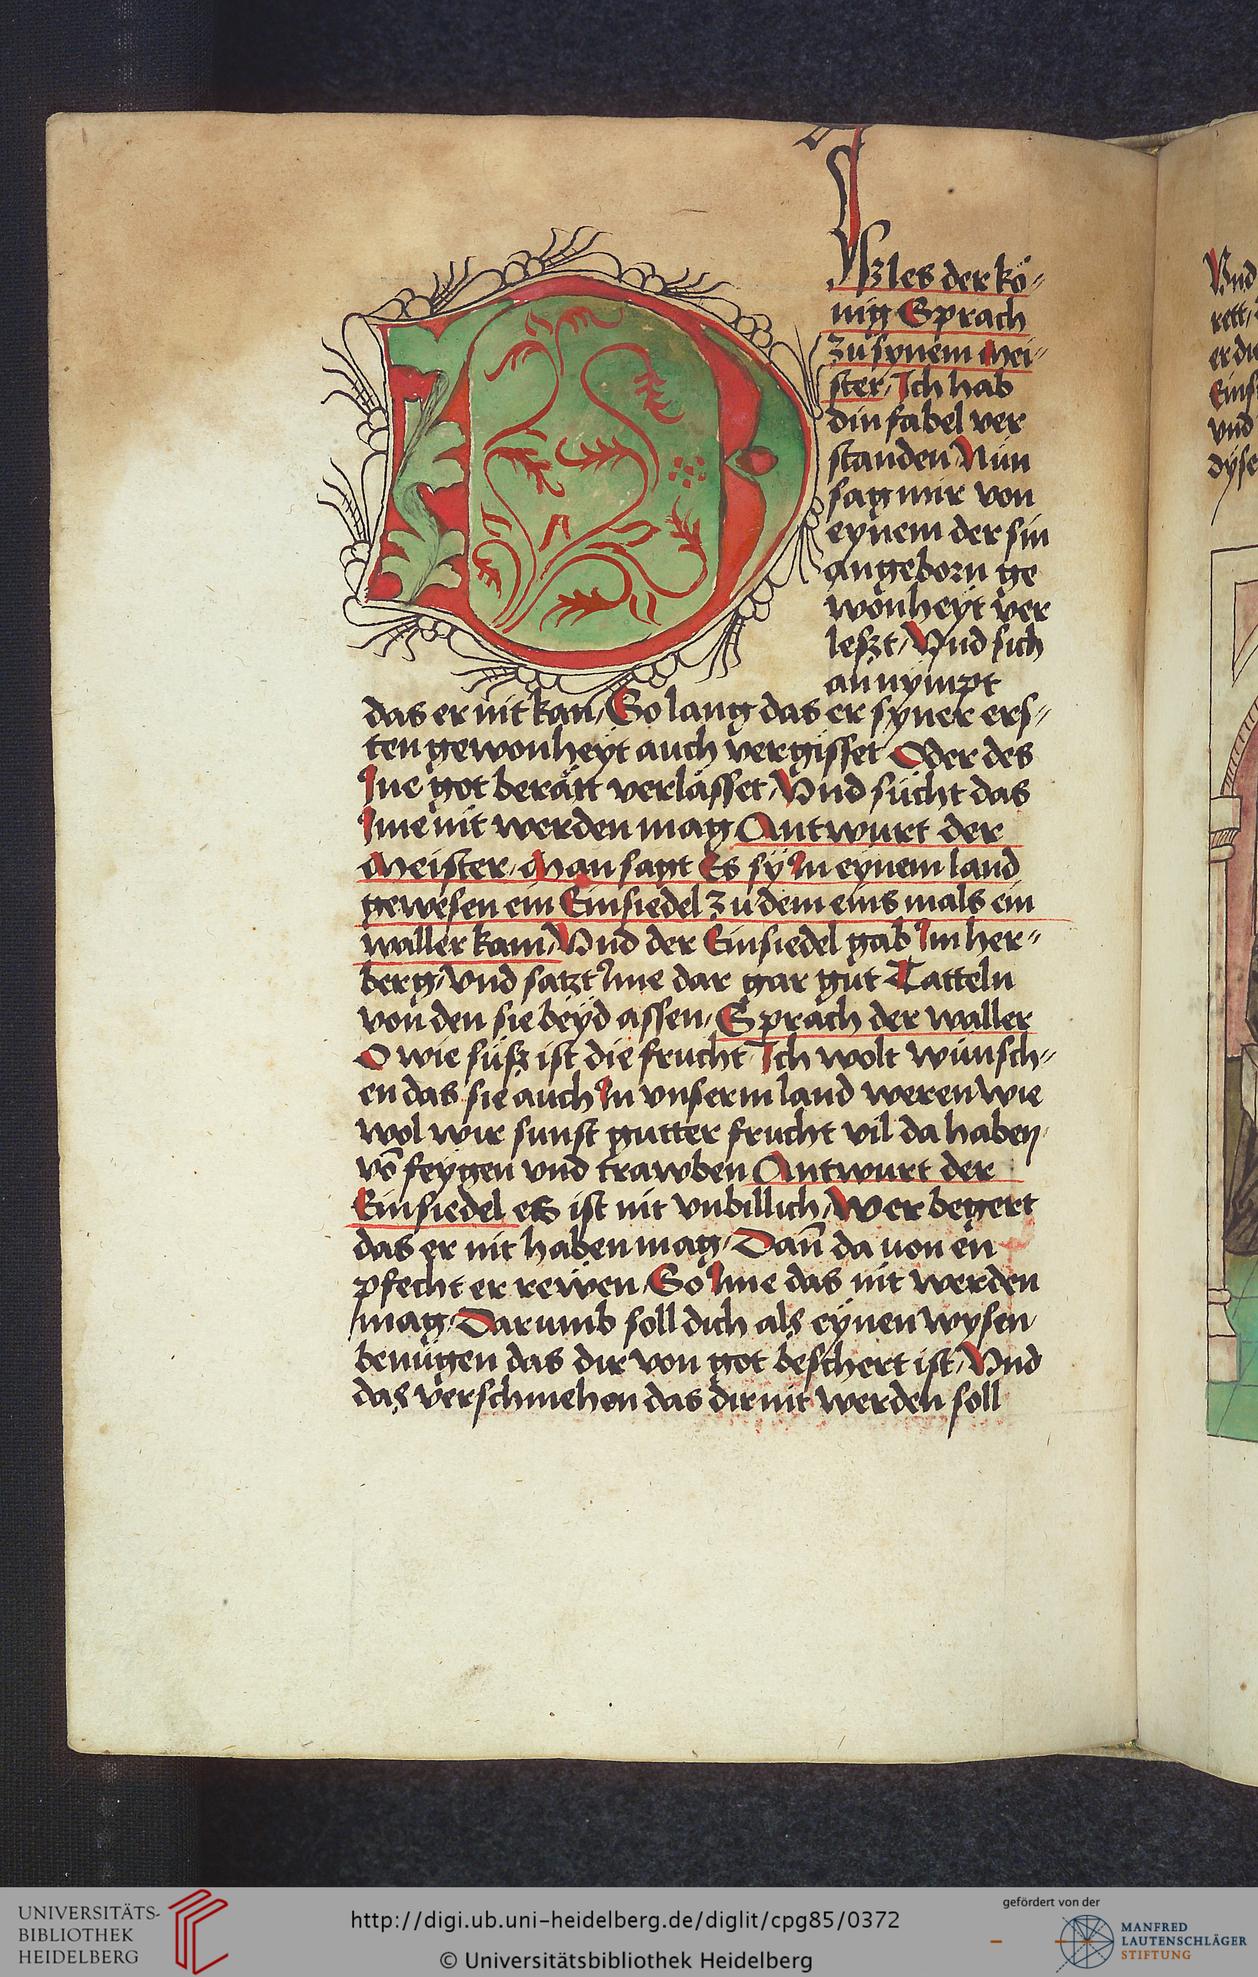 DJszles der kö-
nig Sprach
zu synem Mei-
ster, Ich hab
din fabel ver
standen Nün
sag mir von
eynem der sin
angeborn ge
wonheyt ver
leszt, Vnd sich
an nympt
das er nit kan, So lang das er syner ers-
ten gewonheyt auch vergisset Oder des
Ine got berätt verlässet, Vnd sücht das
Ime nit werden mag Antwurt der
Meister, Man sagt Es sy In eynem land
gewesen ein Einsiedel zu dem eins mals ein
waller kam, Vnd der Einsiedel gab Im her-
berg, vnd satzt Ime dar gar gut Tatteln
von den sie beyd assen, Sprach der waller
O wie süsz ist die frucht Ich wolt wünsch-
en das sie auch In vnserm land weren wie
wol wir sunst gutter frucht vil da haben
vō feygen vnd trawben Antwurt der
Einsiedel es ist nit vnbillich, Wer begert
das er nit haben mag, Dan̄ da uon en
pfecht er rewen, So Ime das nit werden
mag, Darumb soll dich als eynen wysen
benügen das dir von got beschert ist, Vnd
das verschmehen das dir nit werden soll
Vnd
rett,
er die
Eins
vnd
dyse
UNIVERSITÄTS-
BIBLIOTHEK
HEIDELBERG
http://digi.ub.uni-heidelberg.de/diglit/cpg85/0372
© Universitätsbibliothek Heidelberg
gefördert von der
MANFRED
LAUTENSCHLÄGER
STIFTUNG